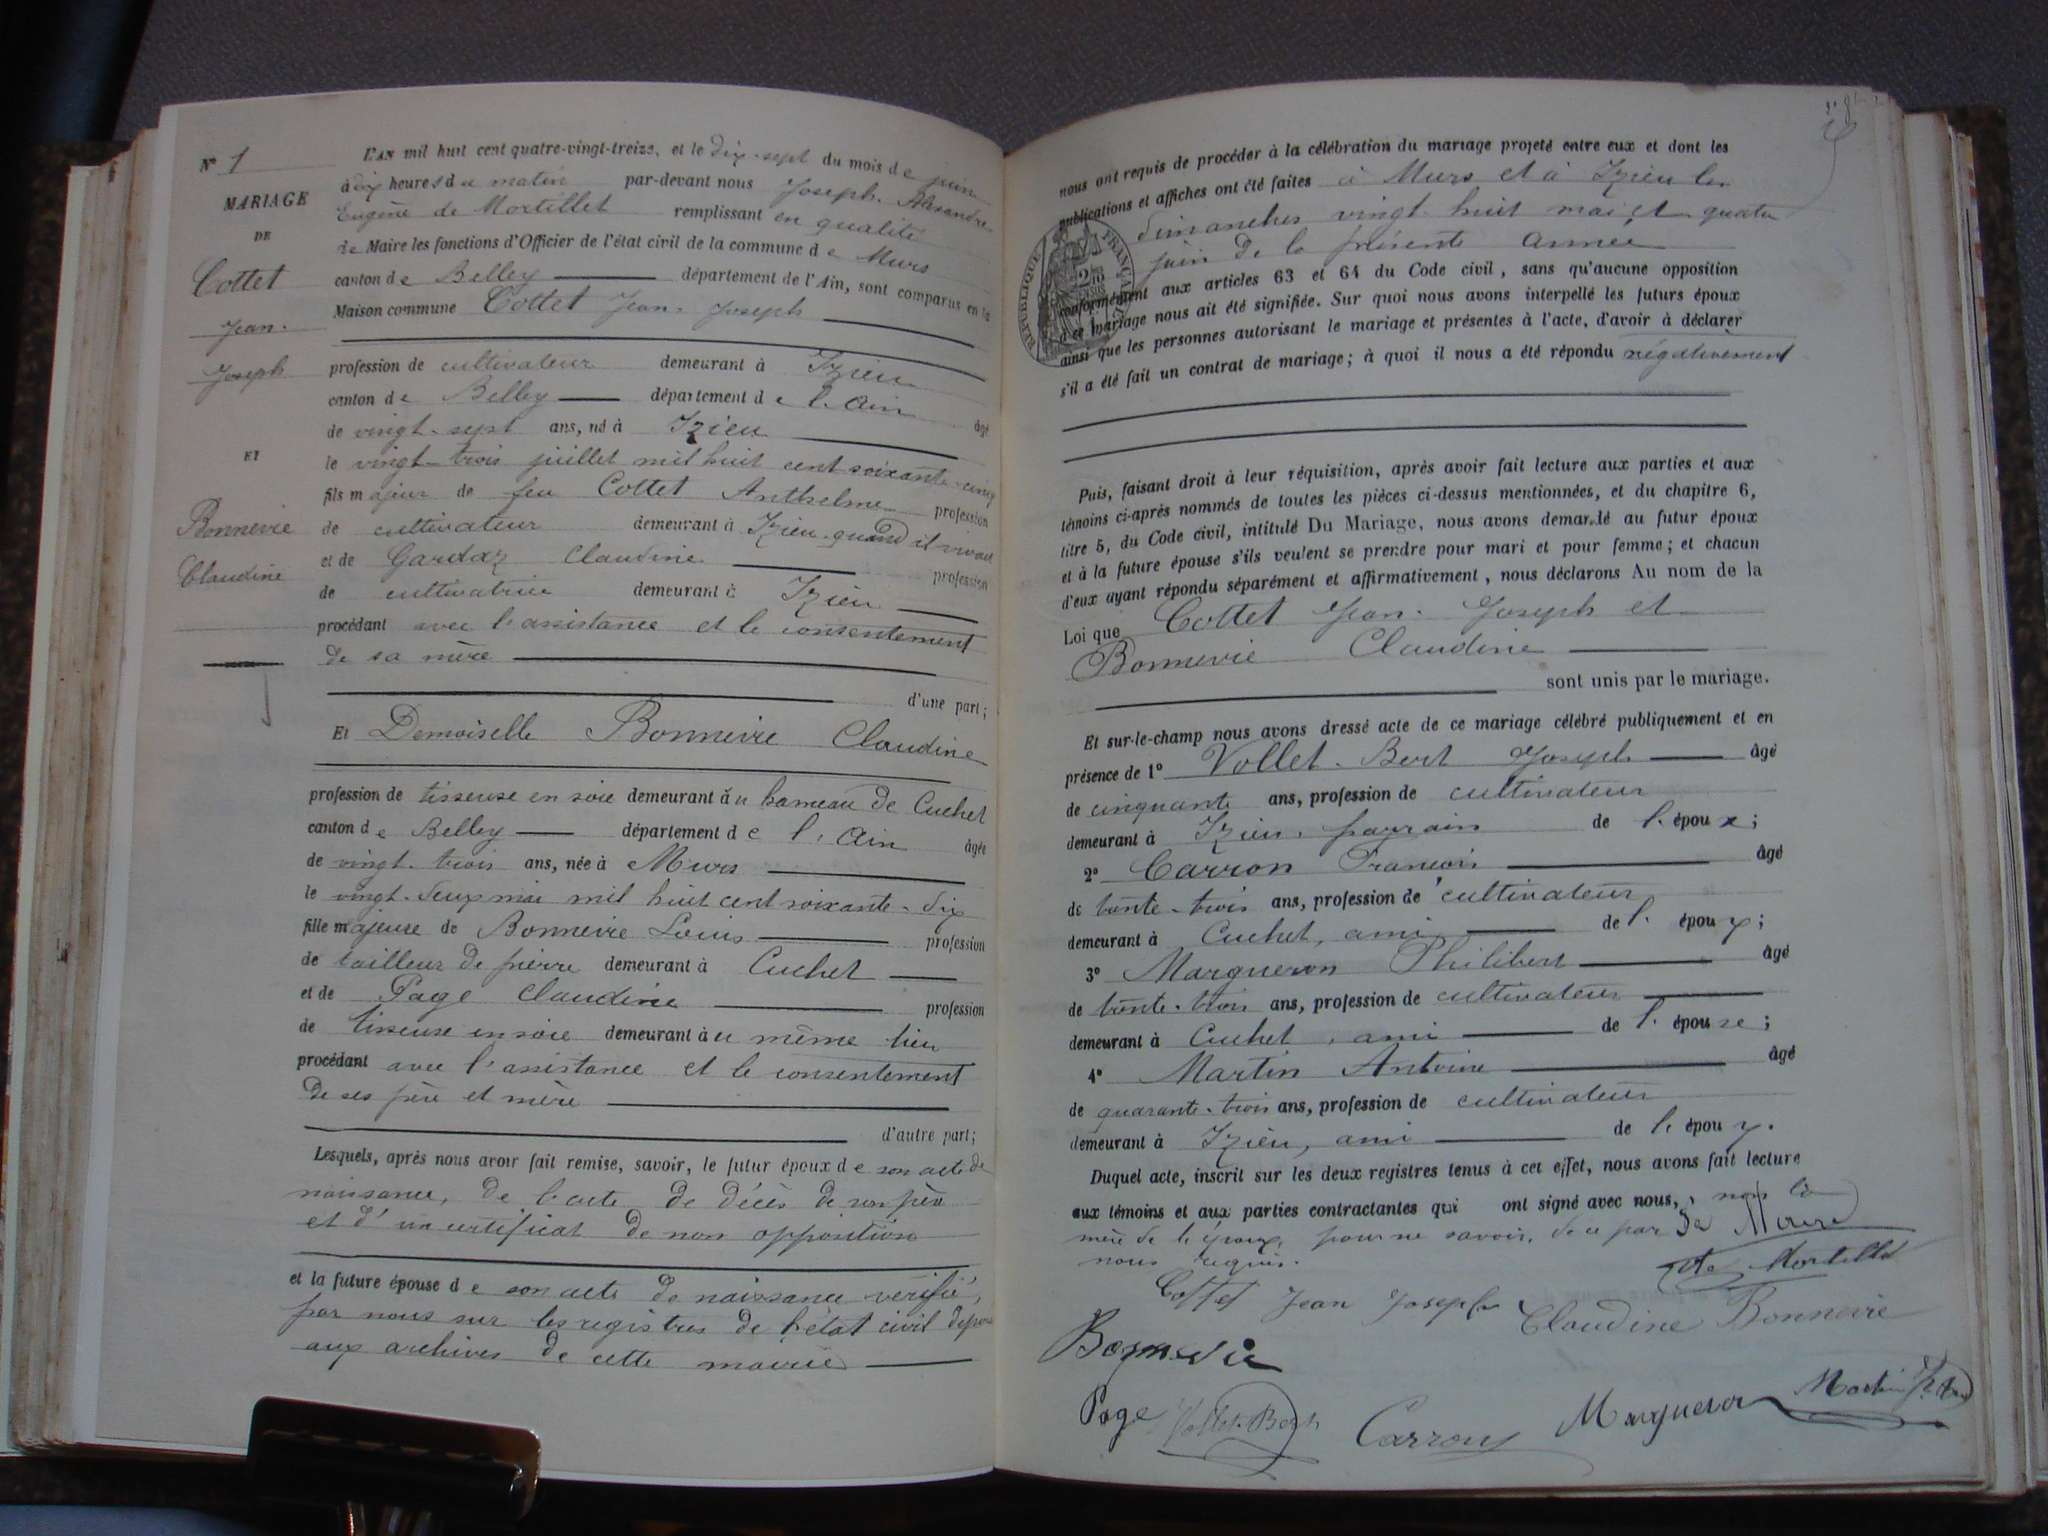 N° 1
MARIAGE
DE
Cottet
Jean-
Joseph
ET
Bonnevie
Claudine
L'AN mil huit cent quatre-vingt-treize, et le dix-sept du mois de juin
à dix heures du matin par-devant nous Joseph-Alexandre-
Eugène de Mortillet remplissant en qualité
de Maire les fonctions d'Officier de l'état civil de la commune de Murs
canton de Belley département de l'Ain, sont comparus en la
Maison commune Cottet Jean-Joseph
profession de cultivateur demeurant à Izieu
canton de Belley département de l'Ain âgé
de vingt-sept ans, né à Izieu
le vingt-trois juillet mil huit cent soixante-cinq
fils majeur de feu Cottet Anthelme profession
de cultivateur demeurant à Izieu quand il vivait
et de Gardaz Claudine profession
de cultivatrice demeurant à Izieu
procédant avec l'assistance et le consentement
de sa mère
d'une part;
Et Demoiselle Bonnevie Claudine
profession de tisseuse en soie demeurant au hameau de Cuchet
canton de Belley département de l'Ain âgée
de vingt-trois ans, née à Murs
le vingt-deux mai mil huit cent soixante-dix
fille majeure de Bonnevie Louis profession
de tailleur de pierre demeurant à Cuchet
et de Page Claudine profession
de tisseuse en soie demeurant au même lieu
procédant avec l'assistance et le consentement
de ses père et mère
d'autre part;
Lesquels, après nous avoir fait remise, savoir, le futur époux de son acte de
naissance, de l'acte de décès de son père
et d'un certificat de non opposition
et la future épouse de son acte de naissance vérifié,
par nous sur les registres de l'état civil déposés
aux archives de cette mairie
nous ont requis de procéder à la célébration du mariage projeté entre eux et dont les
publications et affiches ont été faites à Murs et à Izieu les
dimanches vingt-huit mai et quatre
juin de la présente année
conformément aux articles 63 et 64 du Code civil, sans qu'aucune opposition
à ce mariage nous ait été signifiée. Sur quoi nous avons interpellé les futurs époux
ainsi que les personnes autorisant le mariage et présentes à l'acte, d'avoir à déclarer
s'il a été fait un contrat de mariage; à quoi il nous a été répondu négativement
RÉPUBLIQUE FRANÇAISE
Puis, faisant droit à leur réquisition, après avoir fait lecture aux parties et aux
témoins ci-après nommés de toutes les pièces ci-dessus mentionnées, et du chapitre 6,
titre 5, du Code civil, intitulé Du Mariage, nous avons demandé au futur époux
et à la future épouse s'ils veulent se prendre pour mari et pour femme; et chacun
d'eux ayant répondu séparément et affirmativement, nous déclarons Au nom de la
Loi que Cottet Jean-Joseph et
Bonnevie Claudine
sont unis par le mariage.
Et sur-le-champ nous avons dressé acte de ce mariage célébré publiquement et en
présence de 1° Vollet-Bert Joseph âgé
de cinquante ans, profession de cultivateur
demeurant à Izieu, parrain de l'époux;
2° Carron Francois âgé
de trente-trois ans, profession de cultivateur
demeurant à Cuchet, ami de l'époux;
3° Margueron Philibert âgé
de trente-trois ans, profession de cultivateur
demeurant à Cuchet, ami de l'épouse;
4° Martin Antoine âgé
de quarante-trois ans, profession de cultivateur
demeurant à Izieu, ami de l'époux.
Duquel acte, inscrit sur les deux registres tenus à cet effet, nous avons fait lecture
aux témoins et aux parties contractantes qui ont signé avec nous, non la
mère de l'époux, pour ne savoir, de ce par
nous requis.
Le Maire
de Mortillet
Cottet Jean Joseph Claudine Bonnevie
Bonnevie
Page Vollet-Bert Carron Margueron Martin